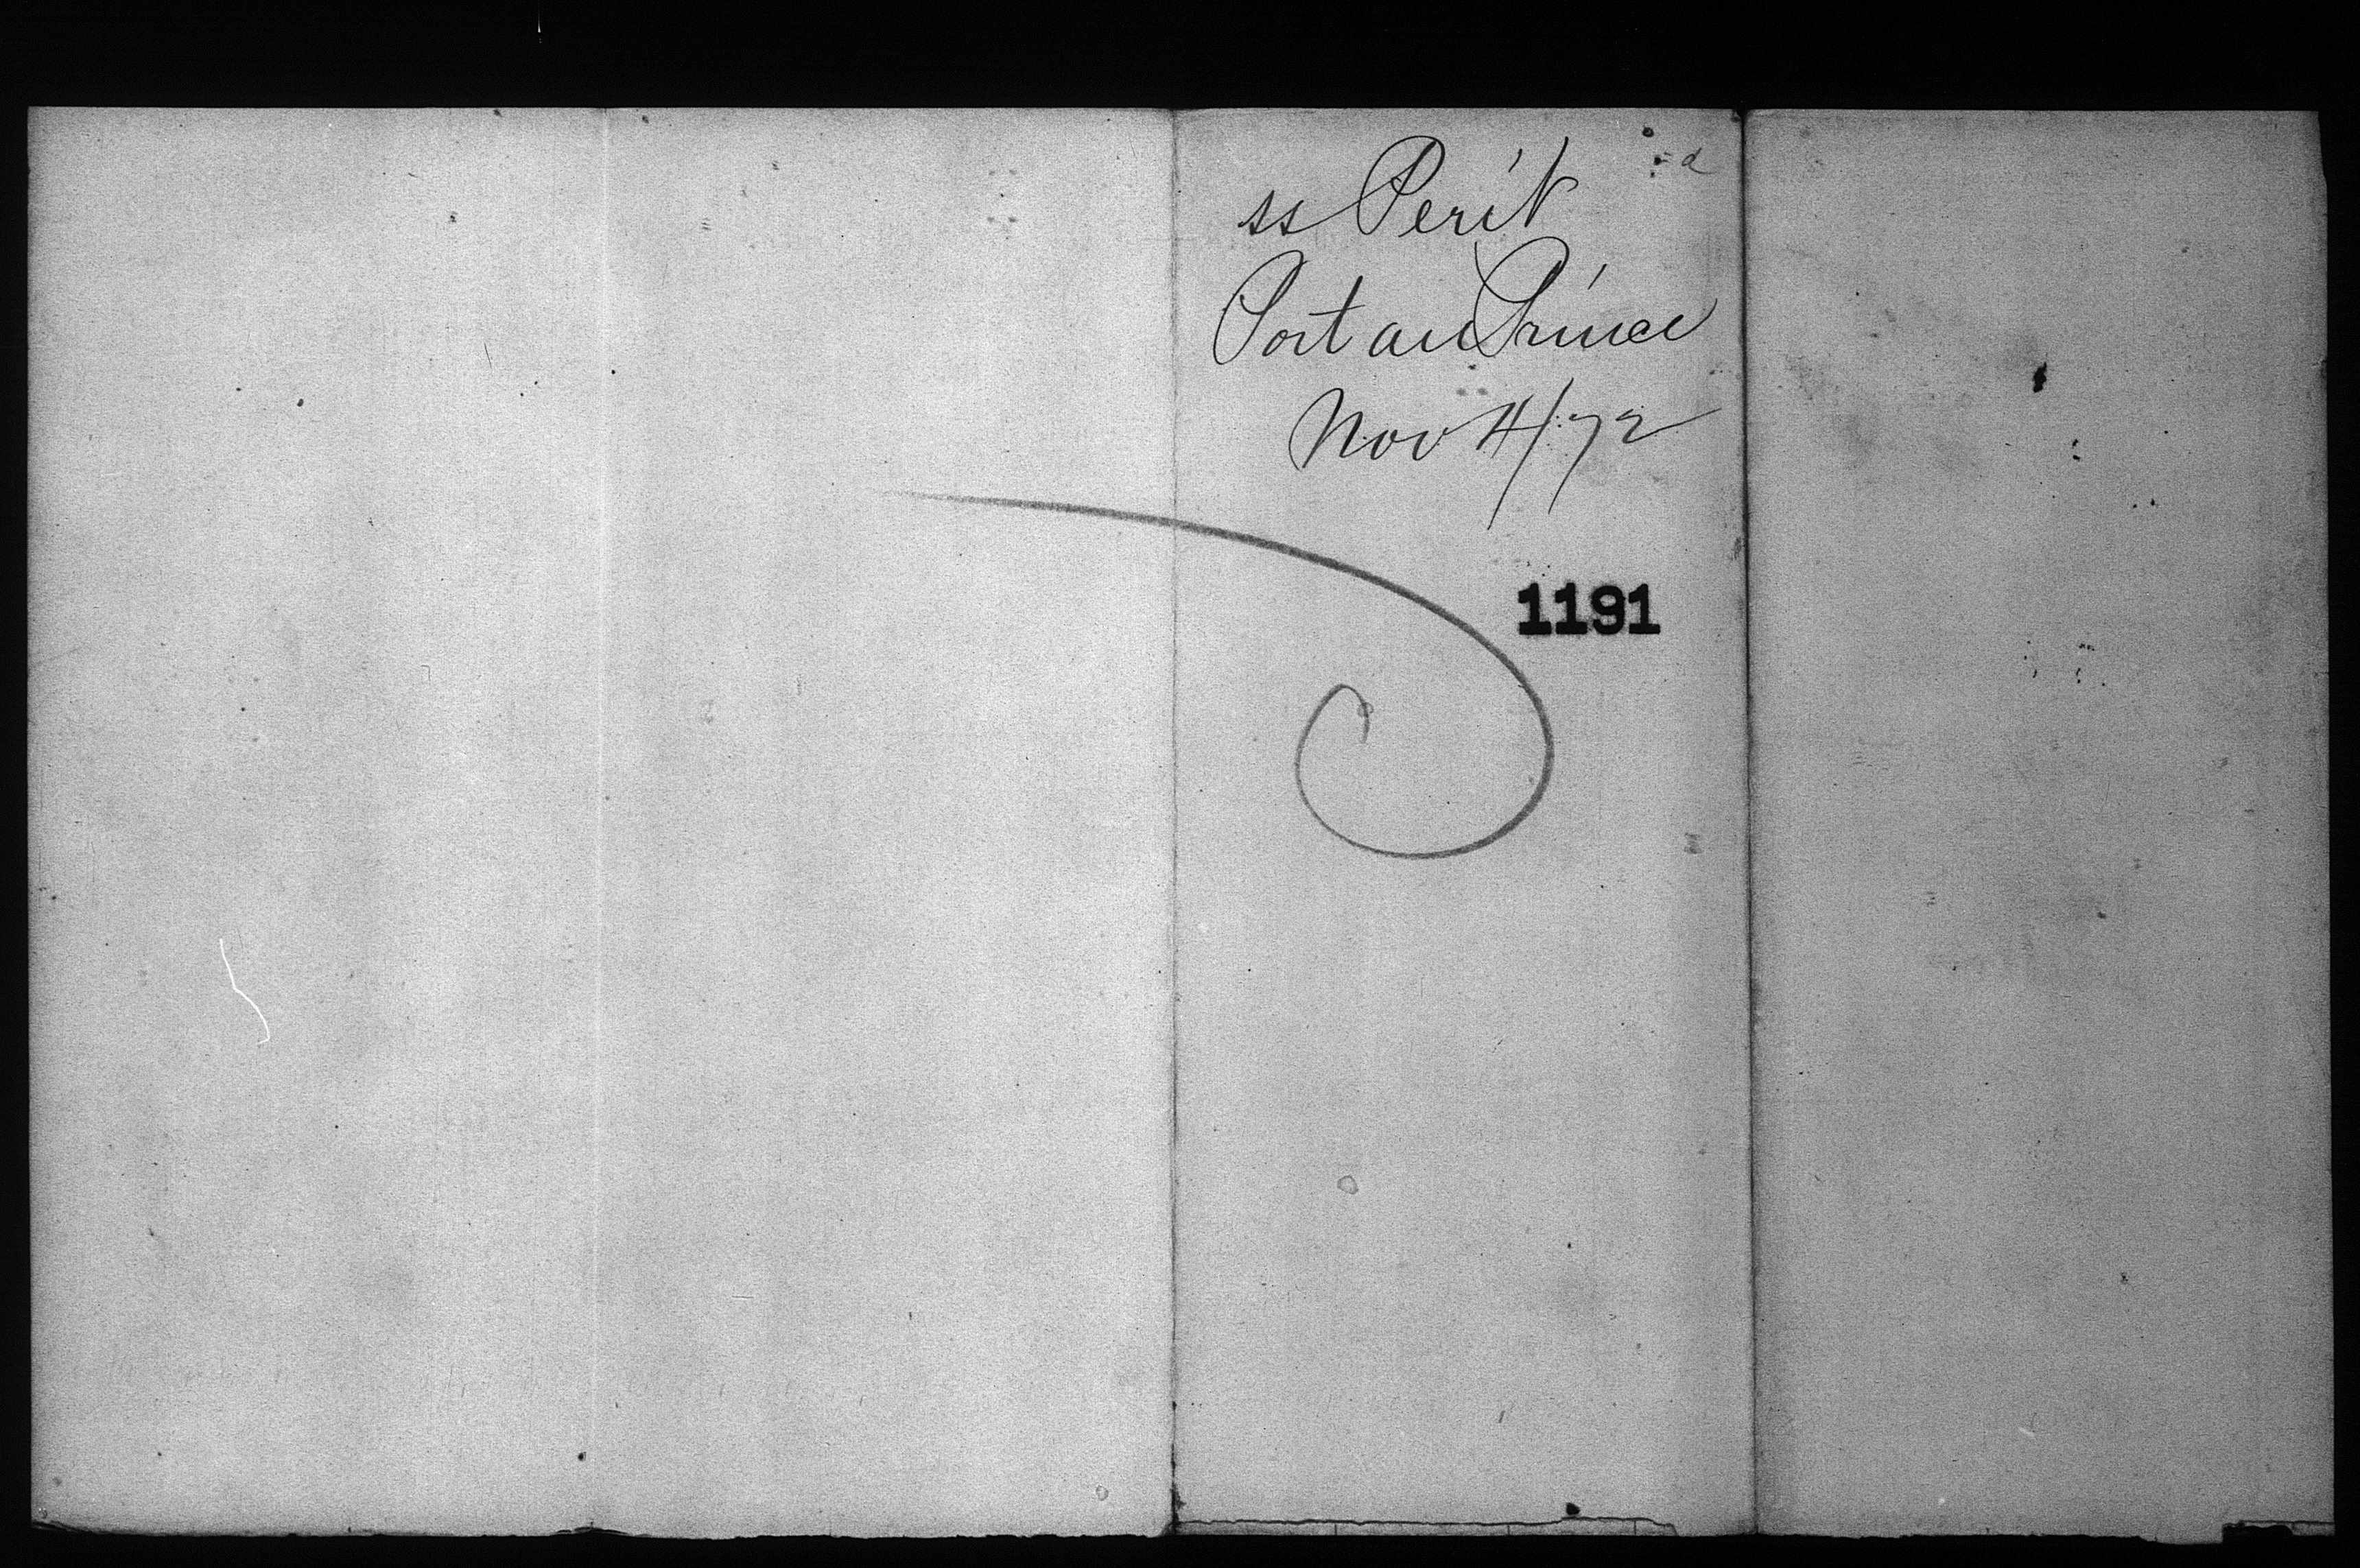 ss Perit
Port au Prince
Nov 4/72
1191